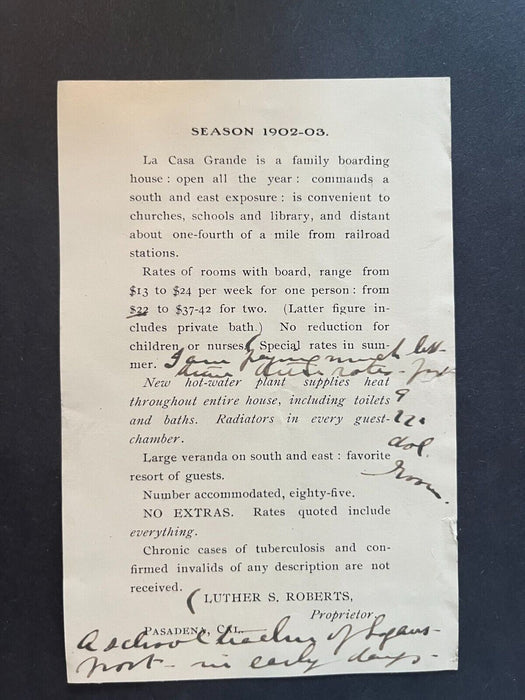 SEASON 1902-03.
La Casa Grande is a family boarding
house : open all the year : commands a
south and east exposure : is convenient to
churches, schools and library, and distant
about one-fourth of a mile from railroad
stations.
Rates of rooms with board, range from
$13 to $24 per week for one person : from
$22 to $37-42 for two. (Latter figure in-
cludes private bath.) No reduction for
children or nurses. Special rates in sum-
mer. I am paying much less
than these rates -
New hot-water plant supplies heat
throughout entire house, including toilets
and baths. Radiators in every guest-
chamber.
dol.
room.
Large veranda on south and east : favorite
resort of guests.
Number accommodated, eighty-five.
NO EXTRAS. Rates quoted include
everything.
Chronic cases of tuberculosis and con-
firmed invalids of any description are not
received.
( LUTHER S. ROBERTS,
Proprietor.
PASADENA, CAL.
A school teacher of Logans-
port - in early days -